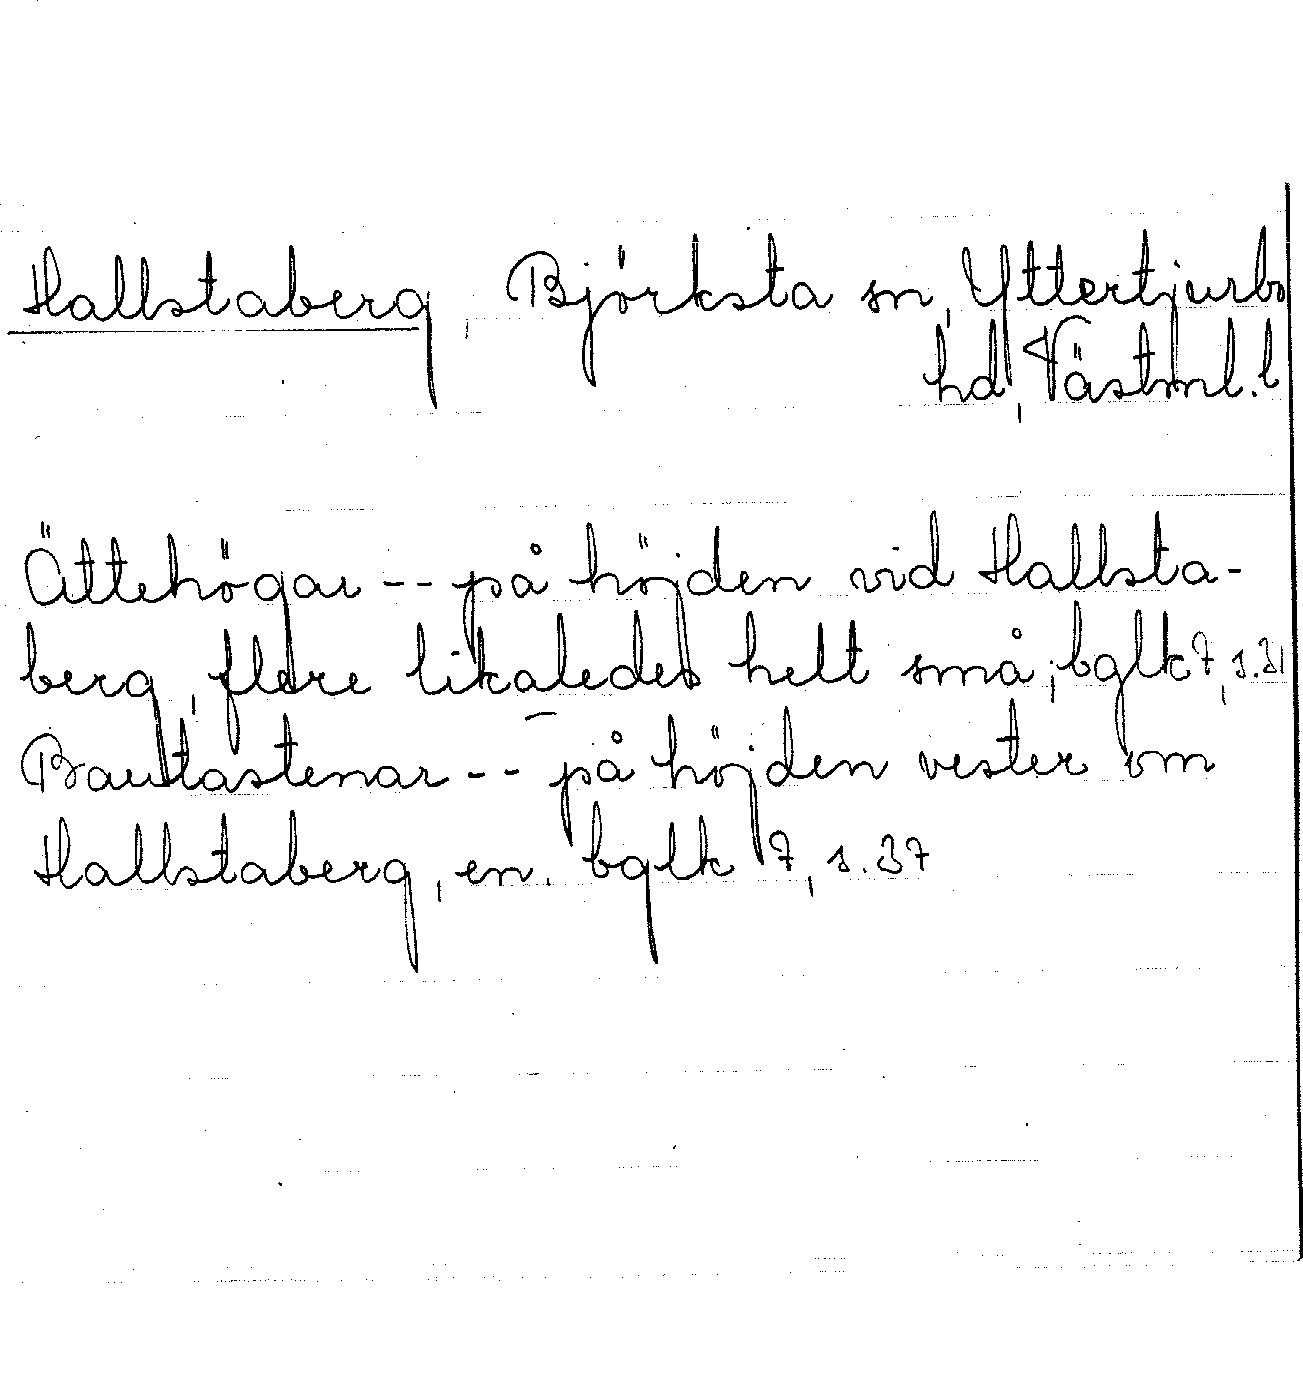 Hallstaberg, Björksta sn, Yttertjurbo
hd, Västml. l
Ättehögar -- på höjden vid Hallsta-
berg, flere likaledes helt små; bglk 7, s. 31
Bautastenar -- på höjden vester om
Hallstaberg, en. bglk 7, s. 37